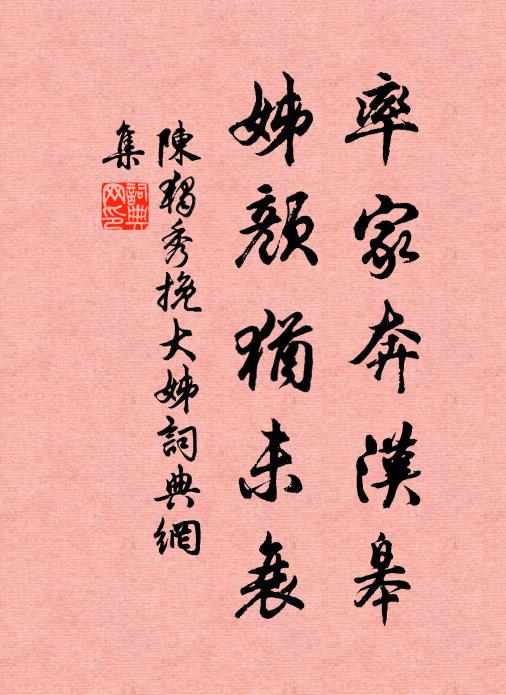 率家奔漢皋
姊顏猶未衰
陳獨秀挽大姊詞典網
集
詞典
网印